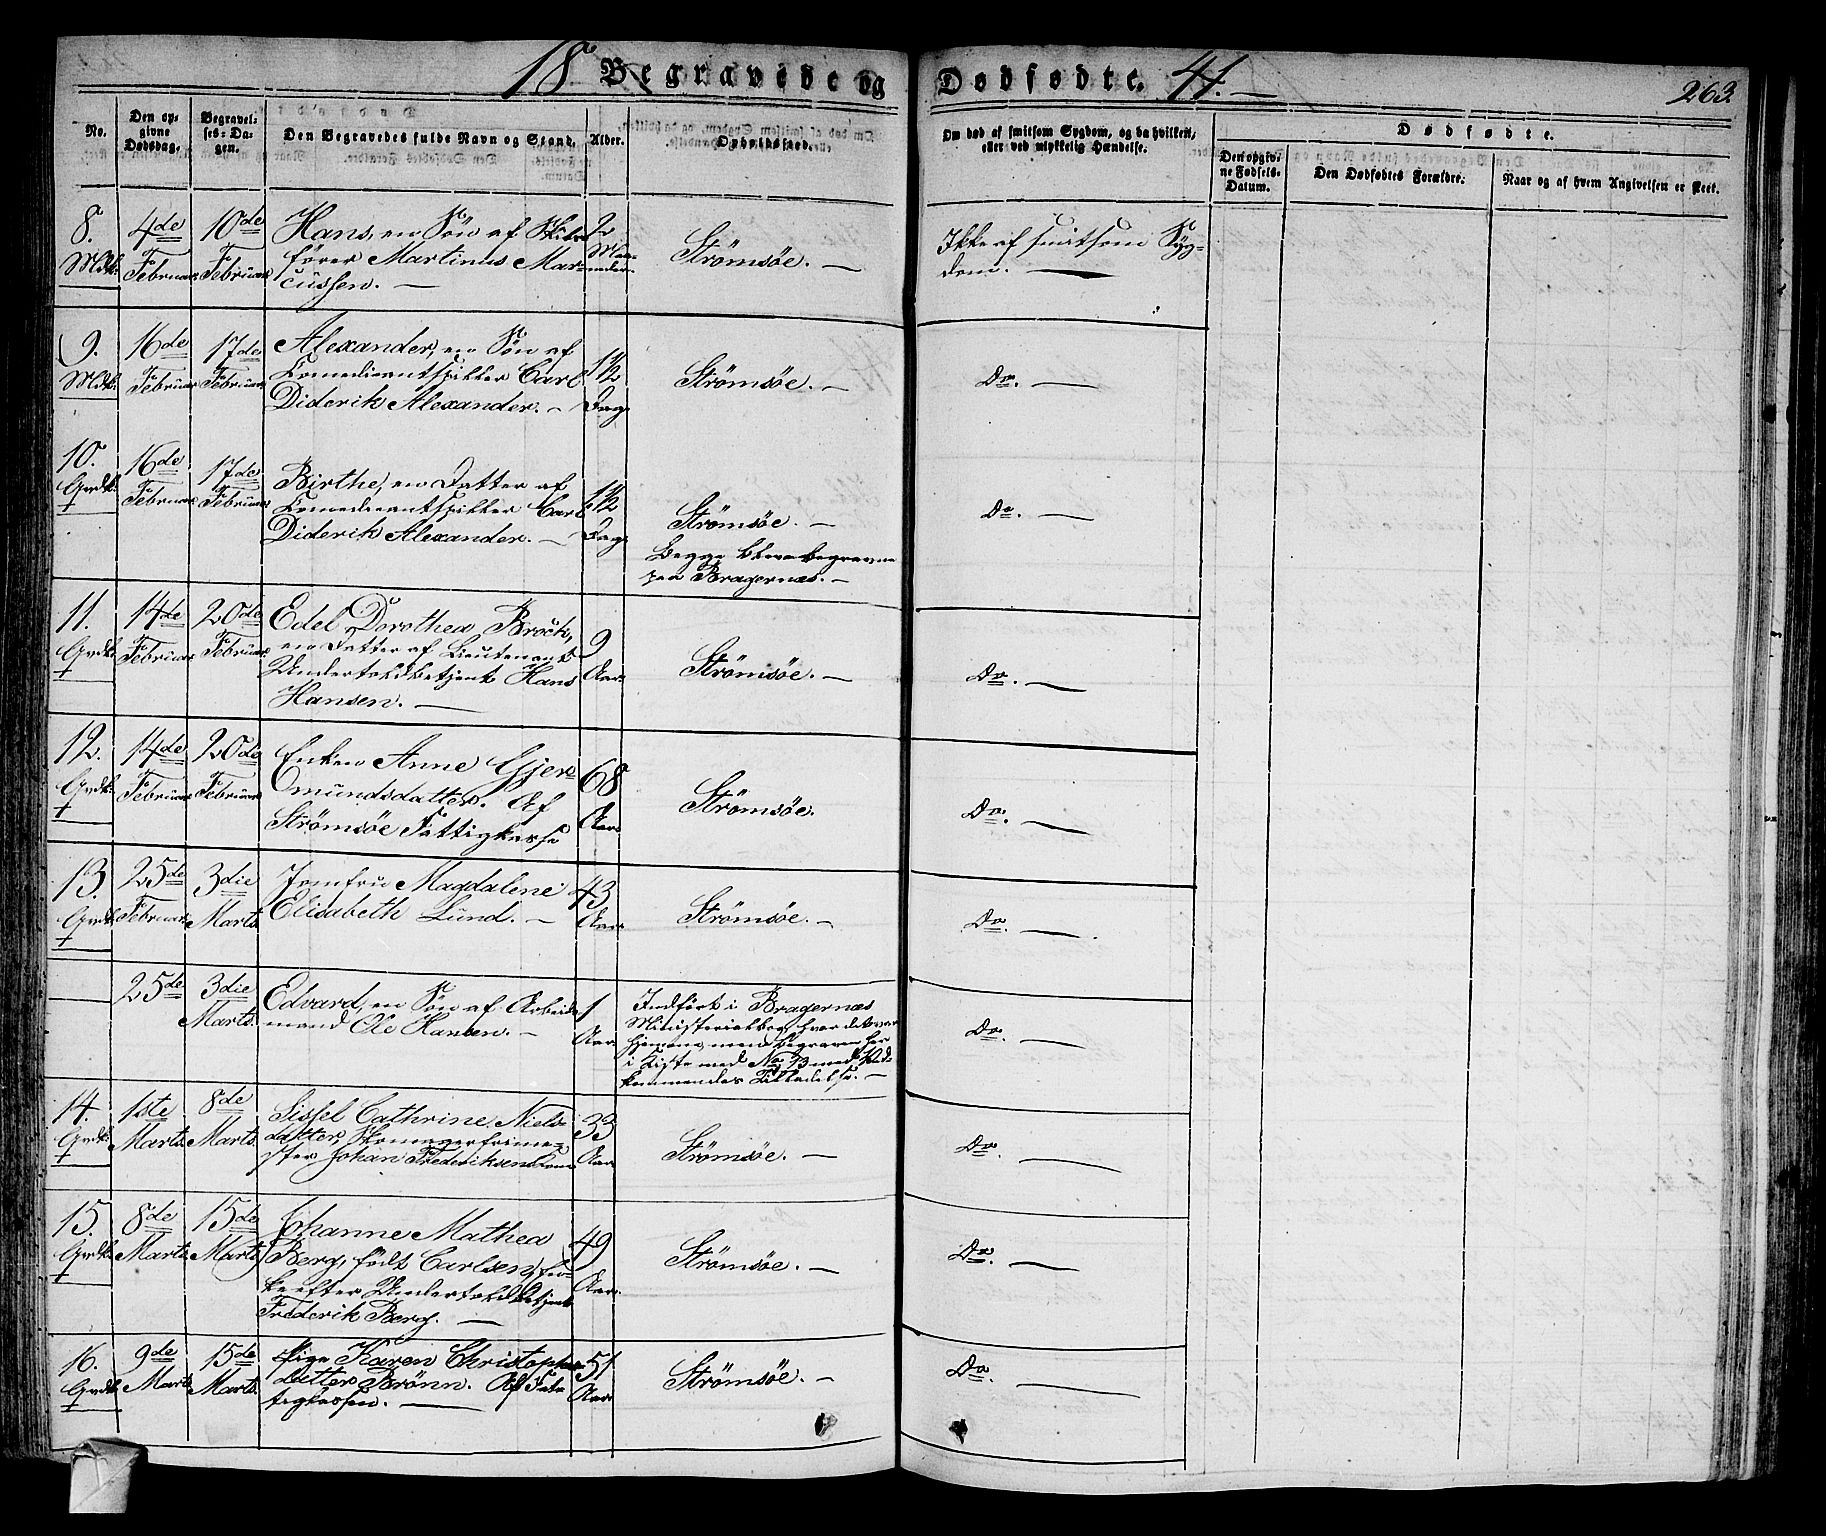 18 Begravede og Dødfødte. 41.
263.
No.
Den op-
givne
Dødsdag.
Begravel-
ses-Da-
gen.
Den Begravedes fulde Navn og Stand.
Alder.
Opholdssted.
Om død af smitsom Sygdom, og da hvilken,
eller ved ulykkelig Hændelse.
Dødfødte.
Den opgiv-
ne Fødsels-
Datum.
Den Dødfødtes Forældre.
Naar og af hvem Angivelsen er skeet.
8.
Mdk:
4de
Februar
10de
Februar
Hans, en Søn af Skibs
fører Martinus Mar-
cussen. —
2
Maa-
neder
Strömsöe. —
Ikke af smitsom Syg-
dom. —
9.
Mdk:
16de
Februar
17de
Februar
Alexander, en Søn af
Comedieantspiller Carl
Diderik Alexander. —
1½
Dag.
Strömsöe. —
Do. —
10.
Qvdk:
16de
Februar
17de
Februar
Birthe, en Datter af
Comedieantspiller Carl
Diderik Alexander. —
1½
Dag.
Strömsöe. —
Begge bleve begravne
paa Bragernæs. —
Do. —
11.
Qvdk:
14de
Februar
20de
Februar
Edel Dorothea Brock,
en Datter af Lieutenant
Undertoldbetjent Hans
Hansen. —
9
Aar
Strömsöe. —
Do. —
12.
Qvdk:
14de
Februar
20de
Februar
Enken Anne Gjer-
mundsdatter. Af
Strömsöe Fattigkasse
68
Aar
Strömsöe.
Do. —
13.
Qvdk:
25de
Februar
3die
Marts
Jomfru Magdalene
Elisabeth Lund. —
43
Aar
Strömsöe. —
Do. —
25de
3die
Marts.
Edvard, en Søn af Arbeids
mand Ole Hansen. —
1
Aar
Indført i Bragernæs
Ministerialbog, hvor det var
hjemme, men begraven her
i Kiste med No 13 med Ved-
kommendes Tilladelse. —
Do. —
14.
Qvdk:
1ste
Marts
8de
Marts.
Sissel Cathrine Niels
datter, Skomager
Johan Frederiksens Kone
33
Aar
Strömsöe. —
Do. —
15.
Qvdk:
8de
Marts
15de
Marts
Johanne Mathea
Berg, født Carlsen, En-
ke efter Undertoldbetjent
Frederik Berg. —
49
Aar
Strömsöe. —
Do. —
16.
Qvdk:
9de
Marts
15de
Marts.
Pige Karen Christophers
datter Brönn. Af Fat-
tigkassen. —
51
Aar
Strömsöe. —
Do. —